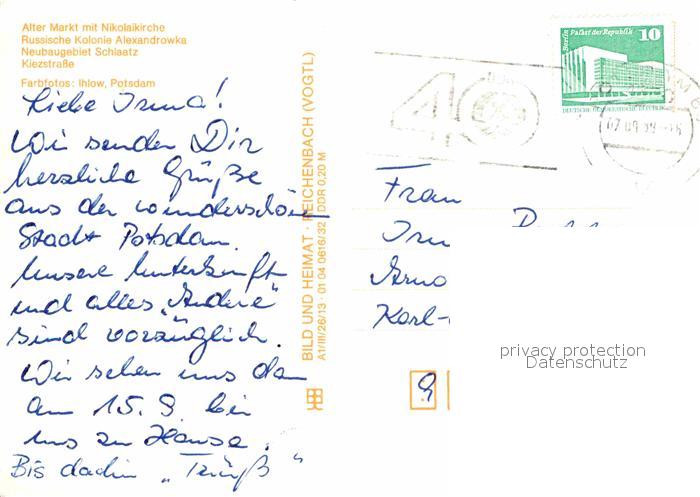 Alter Markt mit Nikolaikirche
Russische Kolonie Alexandrowka
Neubaugebiet Schlaatz
Kiezstraße
Farbfotos: Ihlow, Potsdam
Liebe Irma!
Wir senden Dir
herzliche Grüße
aus der wunderschönen
Stadt Potsdam.
Unsere Unterkunft
und alles "Andere"
sind vorzüglich.
Wir sehen uns dann
am 15. 9. bei
uns zu Hause.
Bis dahin "Tschüß"
BILD UND HEIMAT · REICHENBACH (VOGTL)
A1/III/26/13 · 01 04 0616/32 DDR 0,20 M
40
Berlin Palast der Republik
10
DEUTSCHE DEMOKRATISCHE REPUBLIK
Frau
Arno
Karl-
9
privacy protection
Datenschutz